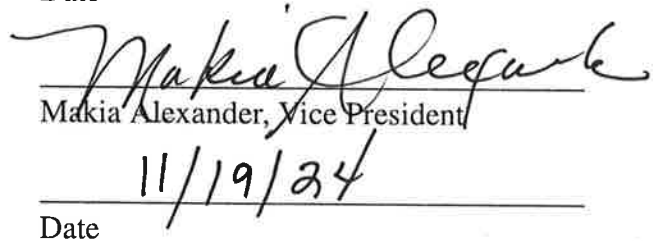 Makia Alexander
Makia Alexander, Vice President
11/19/24
Date